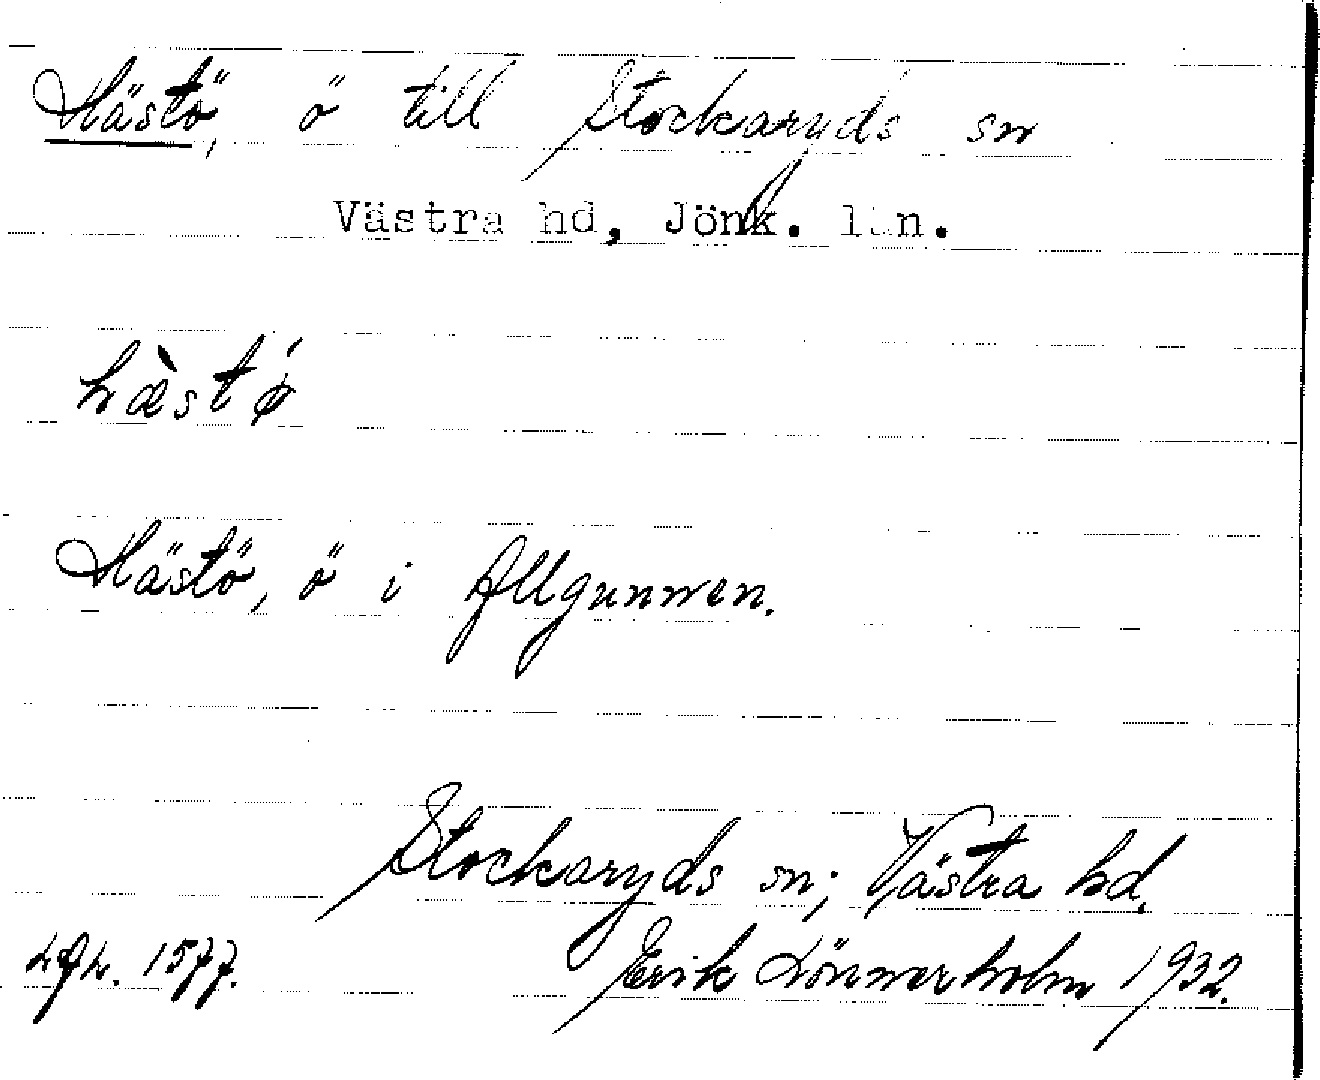 Hästö, ö till Stockaryds sn
Västra hd, Jönk. län.
hæ̀stǿ
Hästö, ö i Allgunnen.
Stockaryds sn; Västra hd.
1577. Erik Lönnerholm 1932.